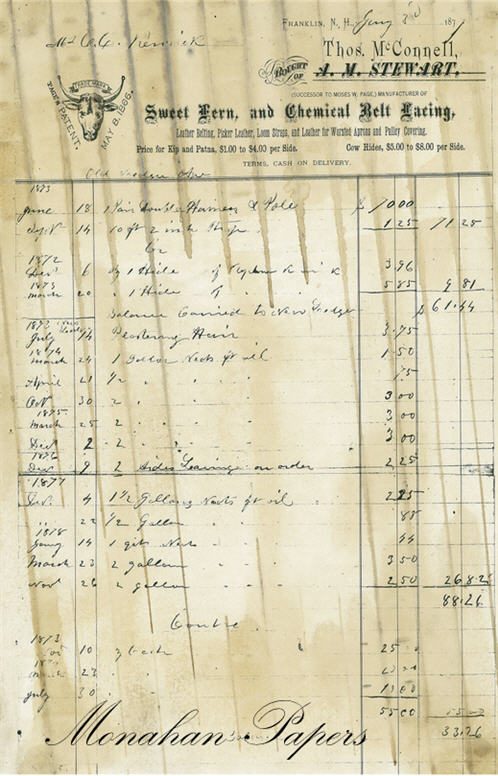 FRANKLIN, N. H. Jany 2nd 187
Thos. McConnell,
BOUGHT OF A. M. STEWART,
TRADE MARK
PAGE'S PATENT. MAY 8, 1866.
(SUCCESSOR TO MOSES W. PAGE,) MANUFACTURER OF
Sweet Fern, and Chemical Belt Lacing,
Leather Belting, Picker Leather, Loom Straps, and Leather for Worsted Aprons and Pulley Covering.
Price for Kip and Patna, $1.00 to $4.00 per Side. Cow Hides, $5.00 to $8.00 per Side.
TERMS, CASH ON DELIVERY.
1873
June 18 1 Pair Double Harness & Pole $ 70 00
Sept 14 10 ft 2 inch 1 25 71 25
Cr
1872
Dec 6 By 1 Hide 3 96
1873
March 20 1 Hide 5 85 9 81
Balance Carried to New Ledger $ 61.44
1873
July 14 Plastering Hair 3.75
1874
March 24 1 Gallon Neats ft oil 1.50
April 21 1/2 " " " 75
Oct 30 2 " " " 3 00
1875
March 25 2 " " " 3 00
Dec 2 2 " " " 3 00
1876
Dec 9 2 Sides Lacing on order 2 25
1877
Dec. 4 1 1/2 Gallons Neats ft oil 2 25
" 22 1/2 Gallon " " 88
1878
Jany 14 1 gill Neats 44
March 23 2 gallon " " 3 50
Nov 26 2 gallon " " 2 50 26 82
88.26
Contra
1873
10 By Cash 25
March 23
July 30
55 00 55 00
33.26
Monahan Papers